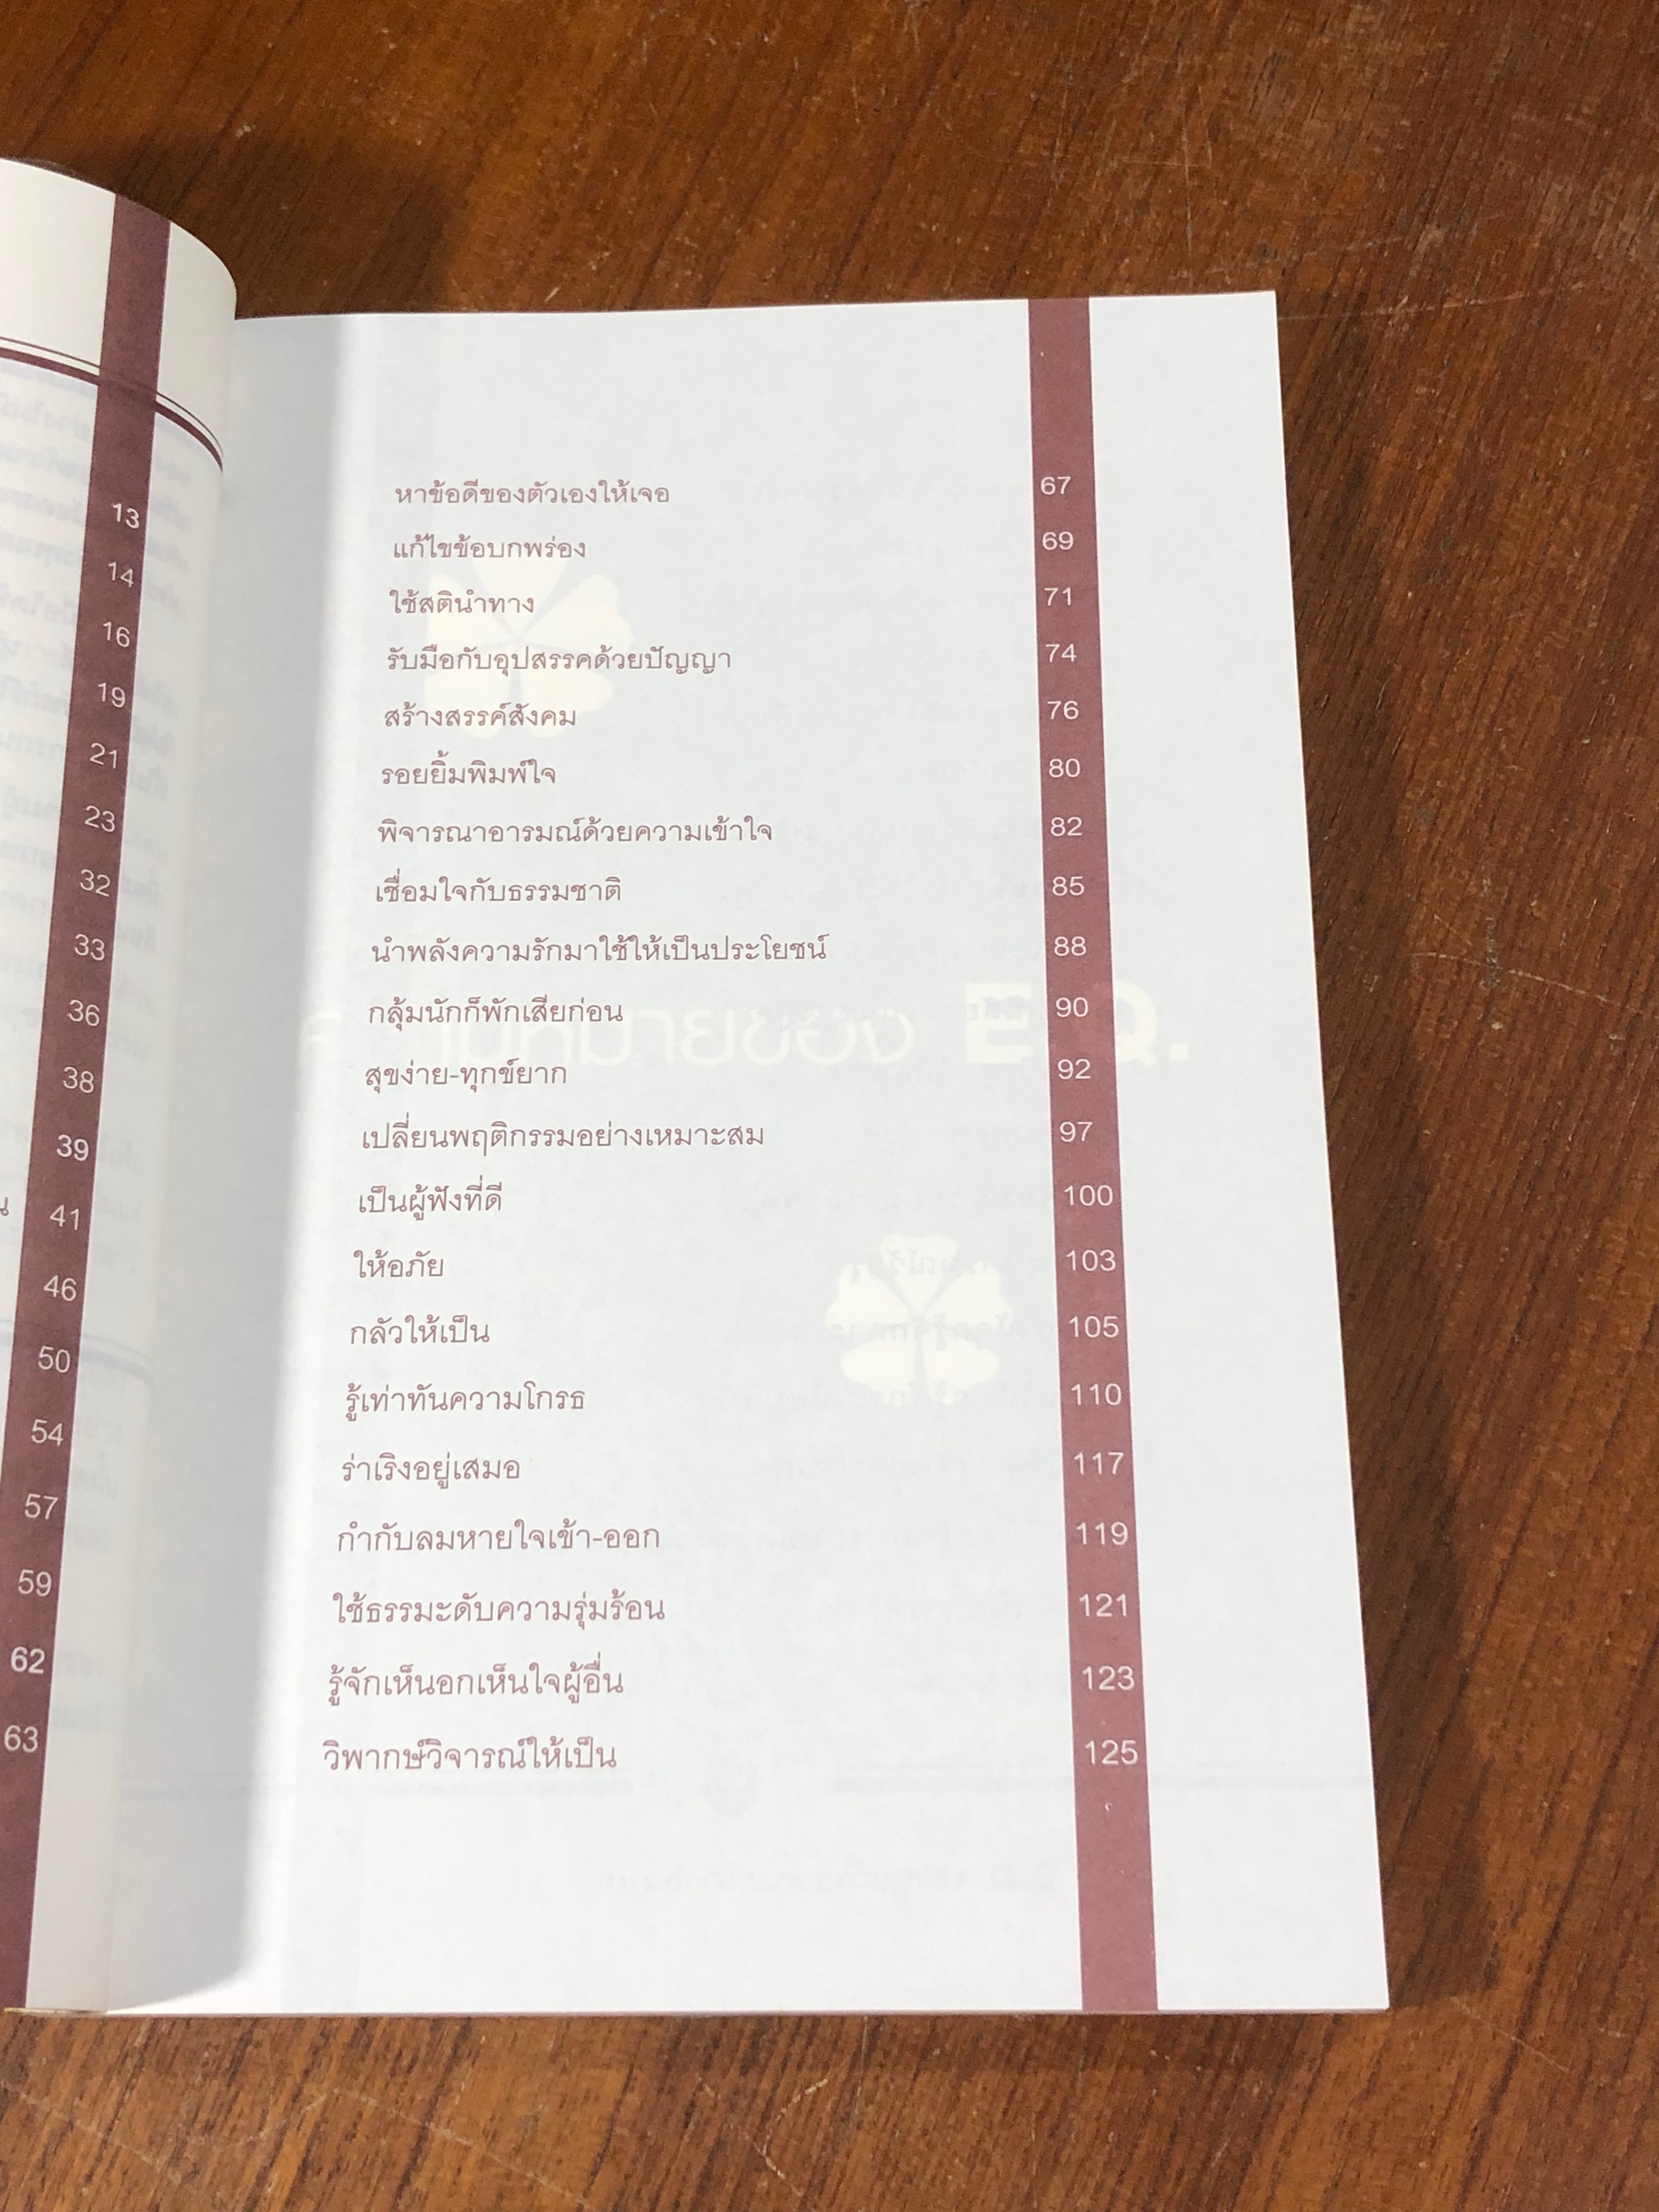 13
14
16
19
21
23
32
33
36
38
39
41
46
50
54
57
59
62
63
หาข้อดีของตัวเองให้เจอ 67
แก้ไขข้อบกพร่อง 69
ใช้สตินำทาง 71
รับมือกับอุปสรรคด้วยปัญญา 74
สร้างสรรค์สังคม 76
รอยยิ้มพิมพ์ใจ 80
พิจารณาอารมณ์ด้วยความเข้าใจ 82
เชื่อมใจกับธรรมชาติ 85
นำพลังความรักมาใช้ให้เป็นประโยชน์ 88
กลุ้มนักก็พักเสียก่อน 90
สุขง่าย-ทุกข์ยาก 92
เปลี่ยนพฤติกรรมอย่างเหมาะสม 97
เป็นผู้ฟังที่ดี 100
ให้อภัย 103
กลัวให้เป็น 105
รู้เท่าทันความโกรธ 110
ร่าเริงอยู่เสมอ 117
กำกับลมหายใจเข้า-ออก 119
ใช้ธรรมะดับความรุ่มร้อน 121
รู้จักเห็นอกเห็นใจผู้อื่น 123
วิพากษ์วิจารณ์ให้เป็น 125